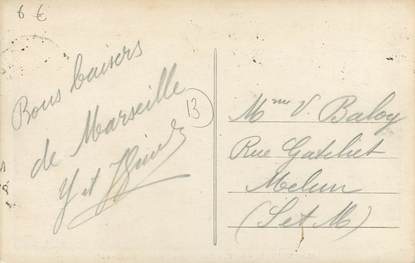 6 €
Bons baisers
de Marseille
Y et
13
Mme V. Baloy
Rue Gatelliet
Melun
(S et M)